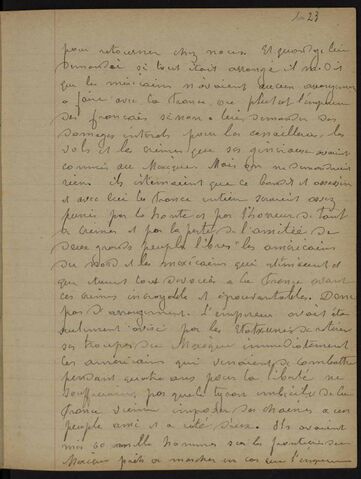 23
pour retourner chez nous. Et quand je lui
demandai si tout était arrangé il me dit
que les mexicains n'avaient aucun arrangement
a faire avec la France, ou plutot l'empereur
des français sinon leur demander des
domages pour les
vols et les crimes que ses généraux avait
commis au Mexique. Mais on ne demandait
rien ils que ce bandit et assassin
et avec lui la France entière seraient assez
punis par la honte et par l'horreur de tout
ce crimes et par la perte de l'amitiée de
deux grands peuples libres les américains
du nord et les mexicains qui et
que tous a la France avant
ces crimes incroyable et épouvantables. Donc
pas d'arrangement. L'empereur avait été
seulement avisé par les Etatsunis de retirer
ses troupes du Mexique immédiatement
les américains qui venaient de combattre
pendant quatre ans pour la liberté ne
pas que le tyran imbécile de la
France vienne imposer des chaines a un
peuple ami et a coté d'eux. Ils avaient
mis 60 mille hommes sur la frontière du
Mexique prêts a marcher en cas que l'empereur